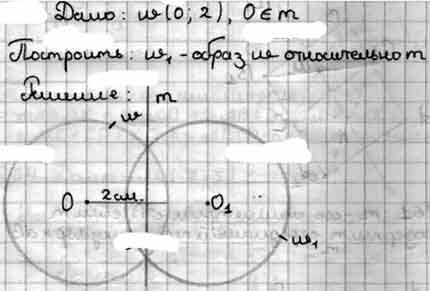 Дано: w(0; 2), O ∈ m
Построить: w₁ - образ w относительно m
Решение:
m
w
O
2 см.
O₁
w₁